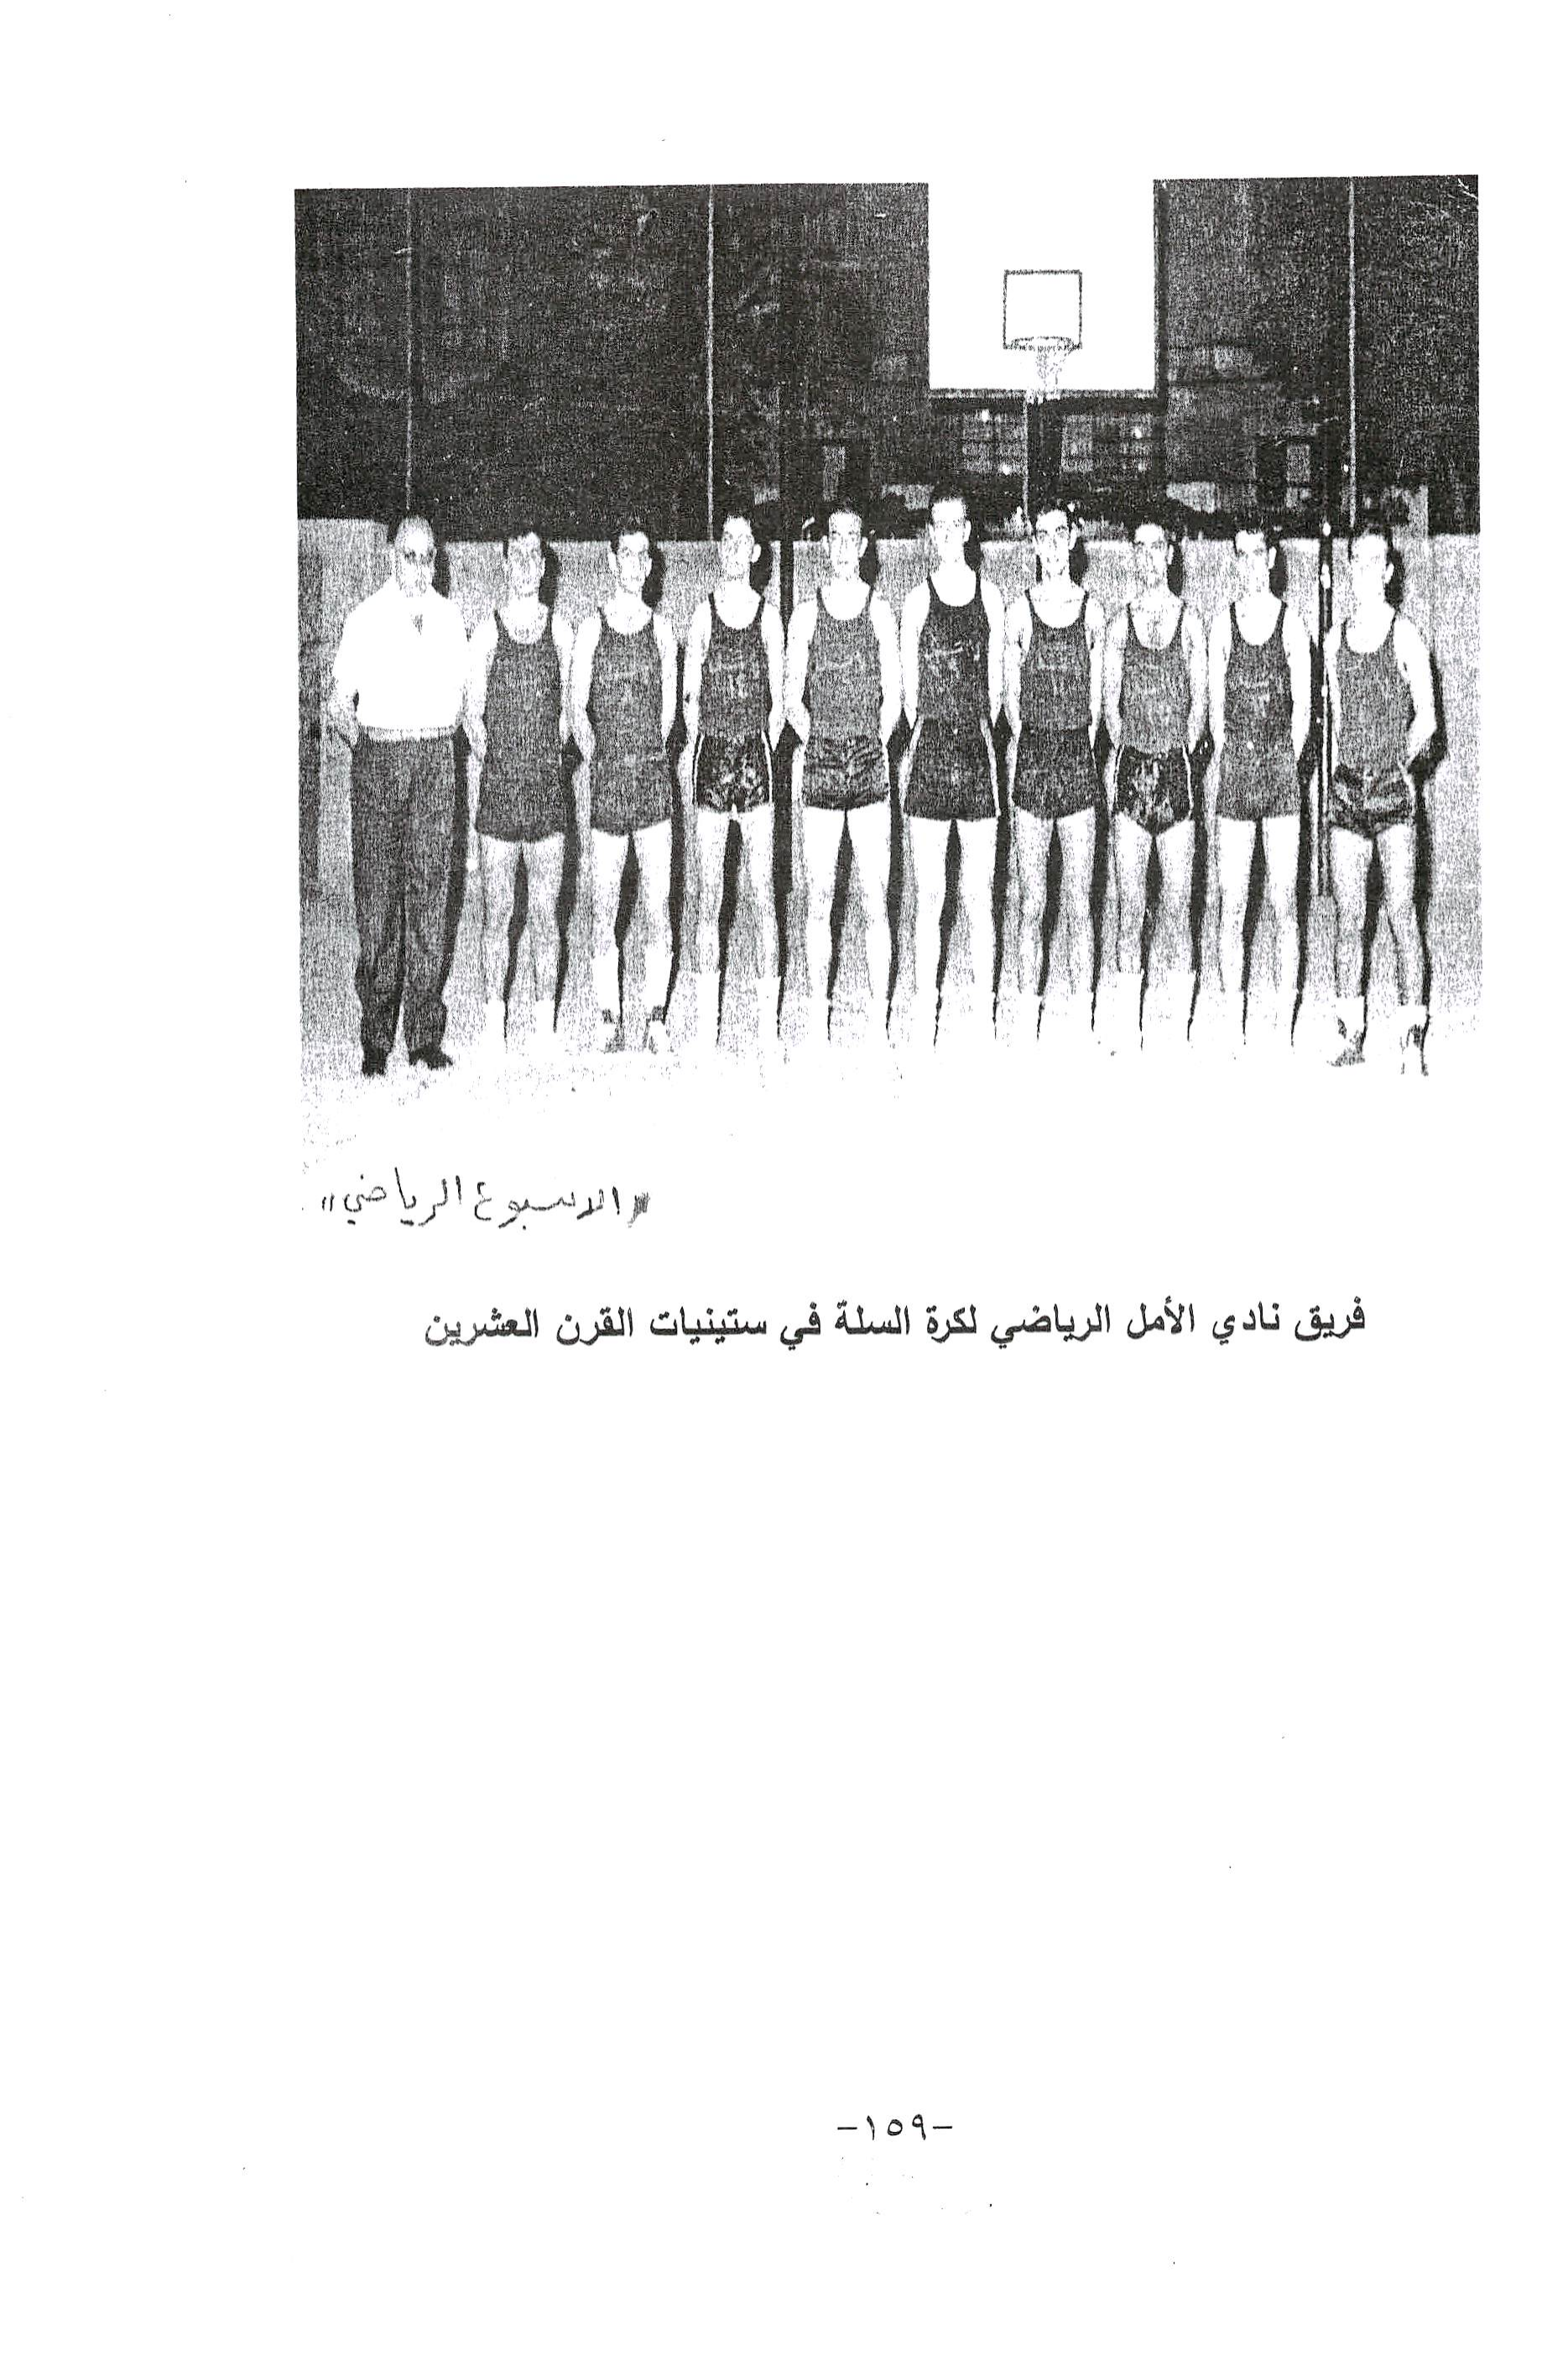 "الاسبوع الرياضي"
فريق نادي الأمل الرياضي لكرة السلة في ستينيات القرن العشرين
-١٥٩-